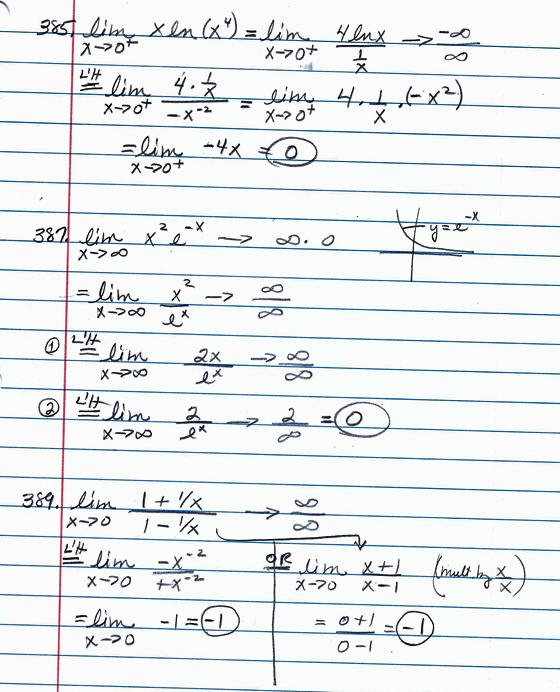 385. lim x→0+ x ln(x⁴) = lim x→0+ 4lnx / 1/x → -∞/∞
L'H = lim x→0+ 4·1/x / -x⁻² = lim x→0+ 4·1/x·(-x²)
= lim x→0+ -4x = 0
387. lim x→∞ x²e⁻ˣ → ∞·0
y=e⁻ˣ
= lim x→∞ x²/eˣ → ∞/∞
① L'H = lim x→∞ 2x/eˣ → ∞/∞
② L'H = lim x→∞ 2/eˣ → 2/∞ = 0
389. lim x→0 1+1/x / 1-1/x → ∞/∞
L'H = lim x→0 -x⁻²/+x⁻²
= lim x→0 -1 = -1
OR lim x→0 x+1/x-1 (mult. by x/x)
= 0+1/0-1 = -1